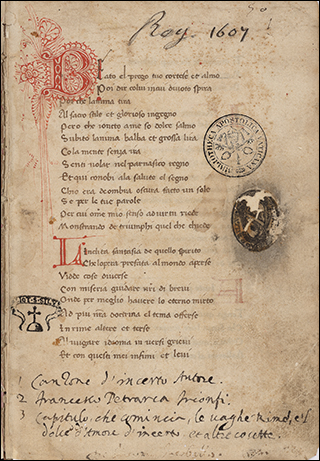 Reg 1607
BEato el prego tuo cortese et almo
Poi dir colui mai divoto spira
Perche lanima tira
Al sacro stile et glorioso ingegno
Pero che io veto a me so dolce salmo
Subito lanima balba et grossa lira
Cola mente senza ira
Seno volar nel parnasico regno
Et qui conobi ala saluto el segno
Chio era dombra oscura facto un solo
Se per le tue parole
Per cui ome mio senso advien vicde
Monstrando de triumphi quel che chiede
LInclita fantasia de quello spirito
Che lopera prefata al mondo aperse
Vide cose diverse
Con miseria guidare iri di brevi
Onde per meglio havere lo eterno mirto
Ad piu vita doctrina el tema offerse
In rime altere et terse
Al vulgare idioma in versi grievi
Et con questi mei infimi et levi
BIBLIOTHECA APOSTOLICA VATICANA
1 Canzone d'incerto Autore.
2 Francesco Petrarca Trionfi.
3 Capitulo, che comincia, le vaghe rime, e'l
dolce d'Amore d'incerto, et altre cosette.